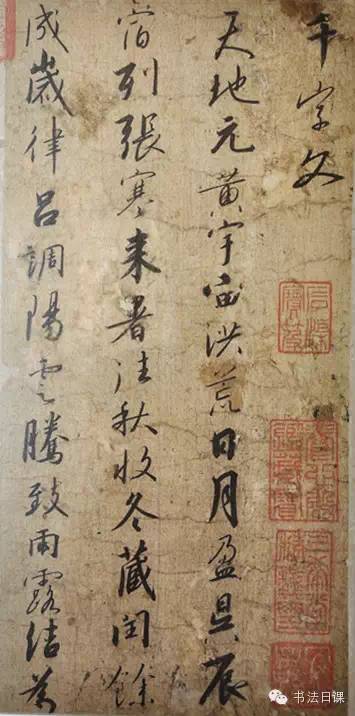 千字文
天地元黄宇宙洪荒日月盈昃辰
宿列張寒来暑往秋收冬藏閏餘
成歲律呂調陽雲騰致雨露結為
书法日课